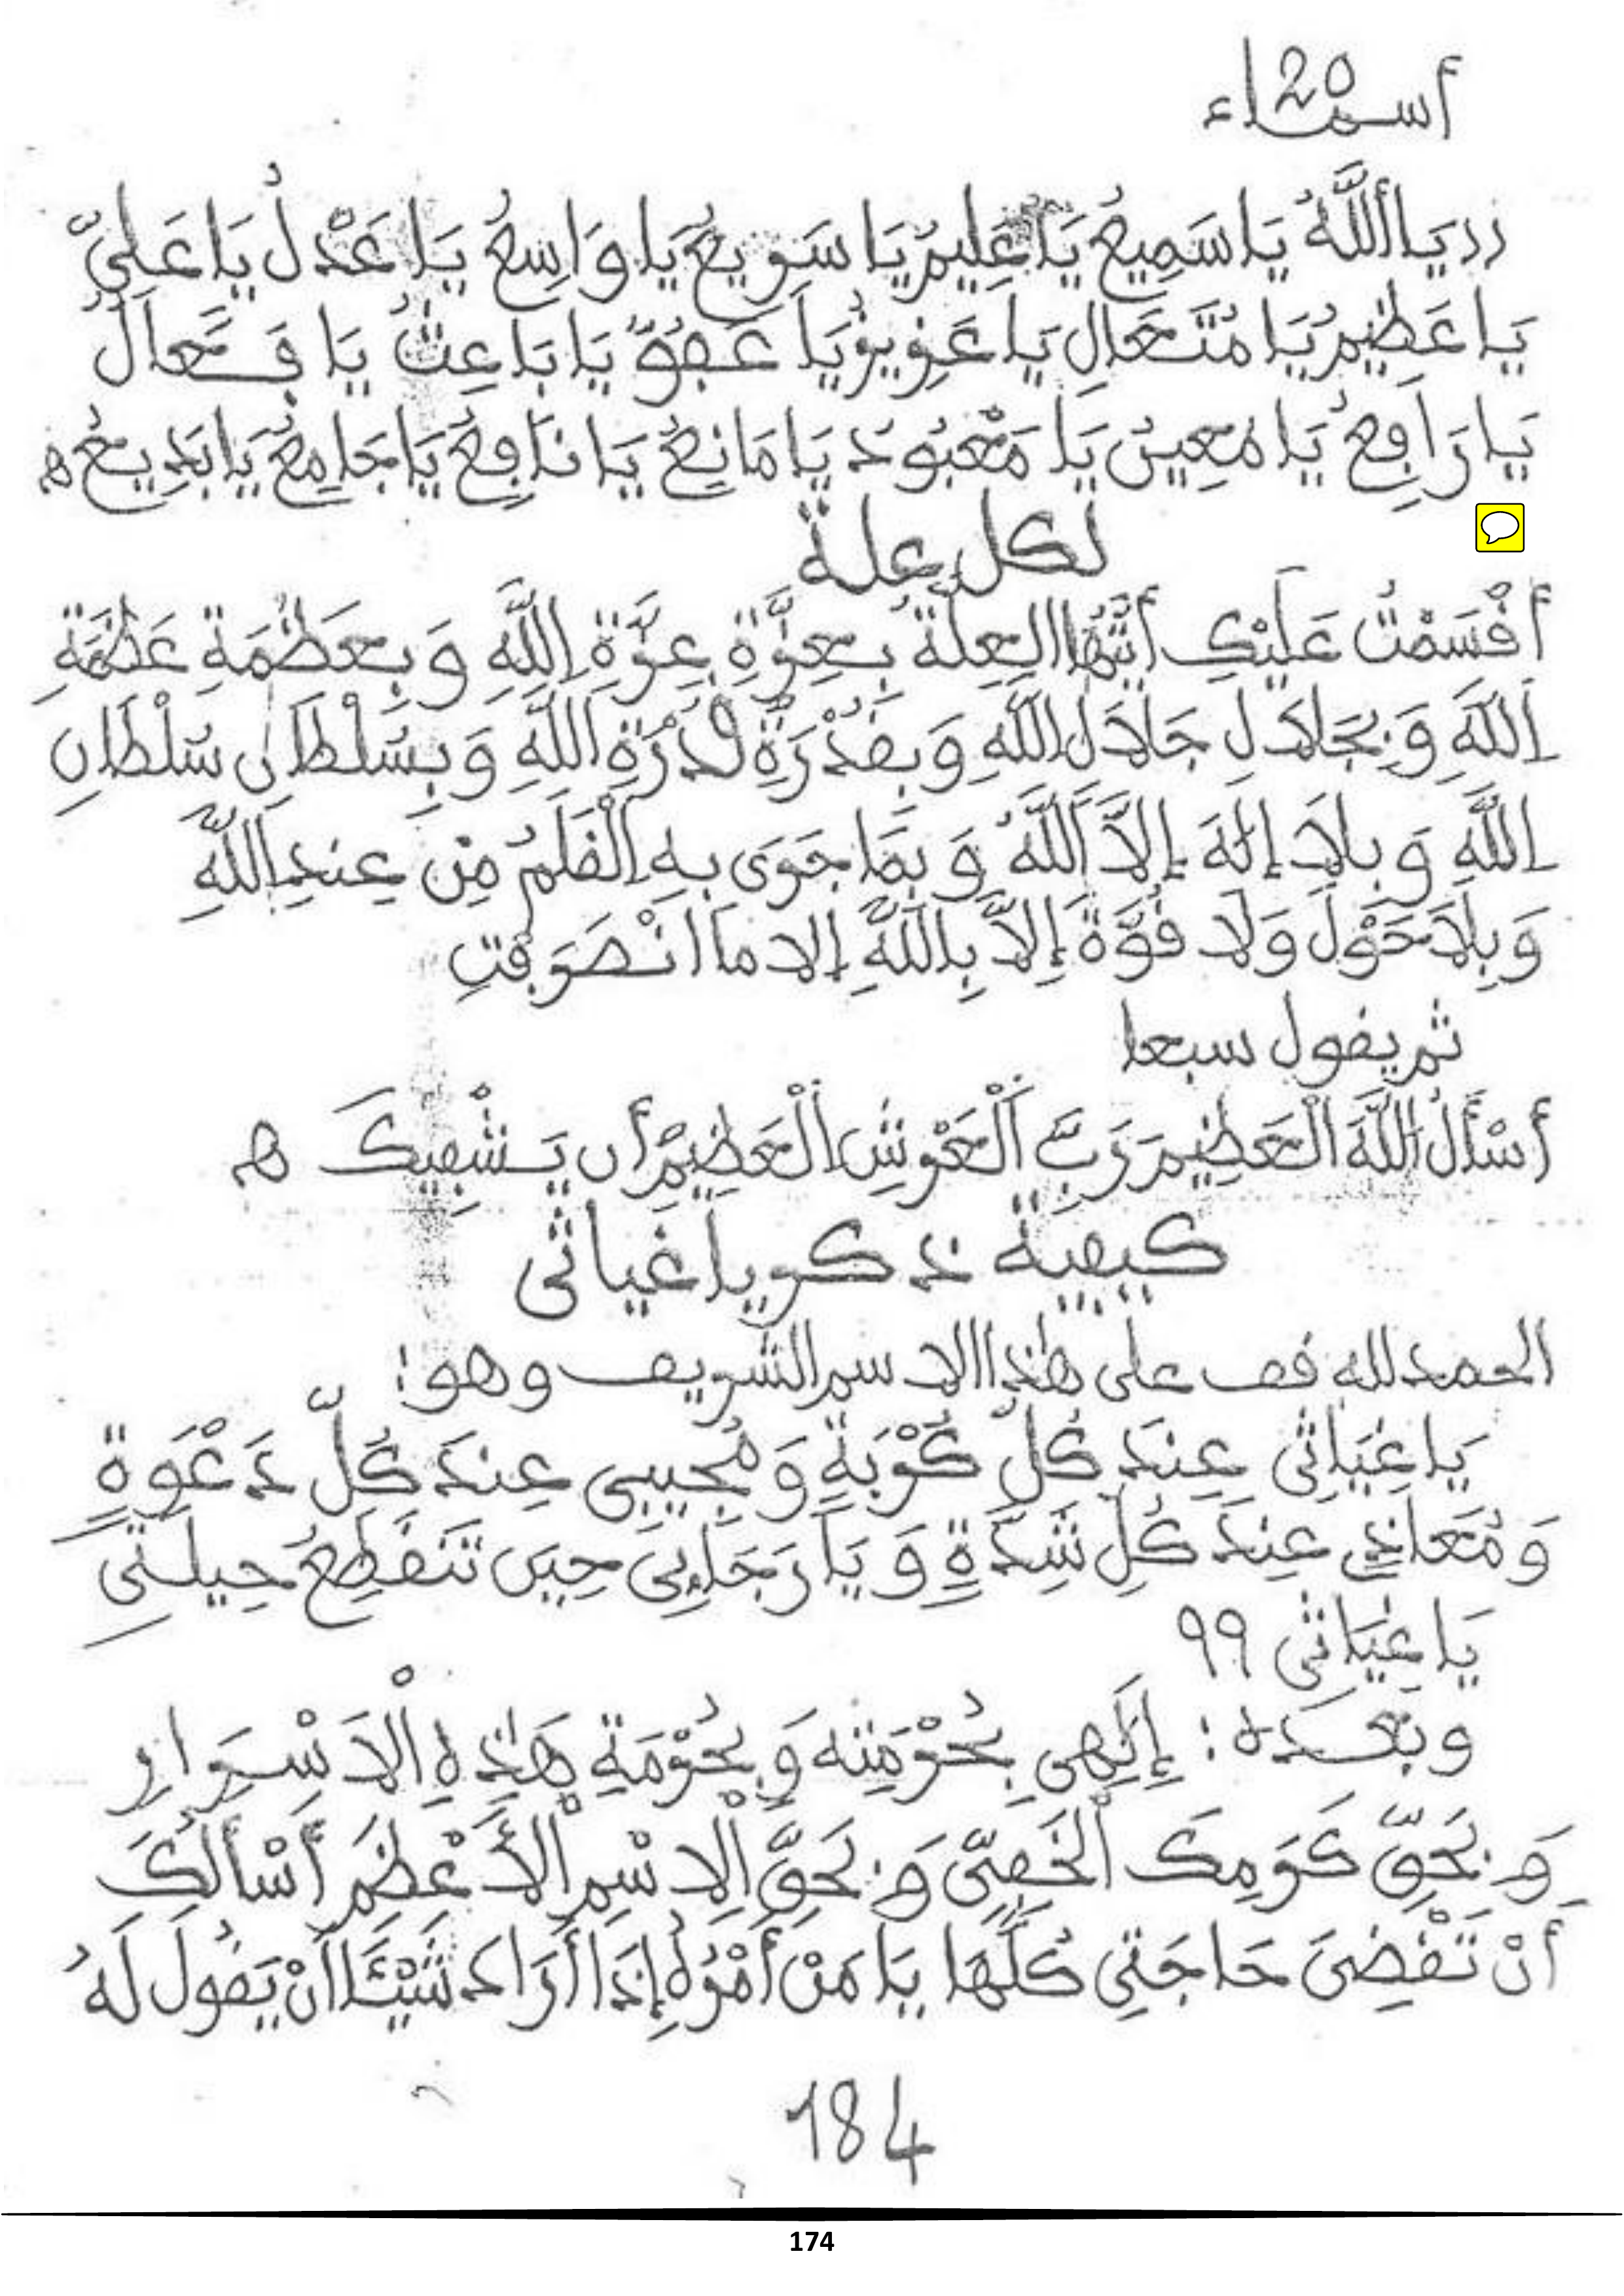 أسماء 20
((يَا أَللَّهُ يَا سَمِيعُ يَا عَلِيمُ يَا سَرِيعُ يَا وَاسِعُ يَا عَدْلُ يَا عَلِيُّ
يَا عَظِيمُ يَا مُتَعَالِ يَا عَزِيزُ يَا عَفُوُّ يَا بَاعِثُ يَا فَعَّالُ
يَا رَافِعُ يَا مُعِينُ يَا مَعْبُودُ يَا مَانِعُ يَا نَافِعُ يَا جَامِعُ يَا بَدِيعُ ه
لكل علة
أَقْسَمْتُ عَلَيْكِ أَيَّتُهَا الْعِلَّةُ بِعِزَّةِ عِزَّةِ اللَّهِ وَبِعَظَمَةِ عَظَمَةِ
اللَّهِ وَبِجَلَالِ جَلَالِ اللَّهِ وَبِقُدْرَةِ قُدْرَةِ اللَّهِ وَبِسُلْطَانِ سُلْطَانِ
اللَّهِ وَبِلَا إِلَٰهَ إِلَّا اللَّهُ وَبِمَا جَرَى بِهِ الْقَلَمُ مِنْ عِندِ اللَّهِ
وَبِلَا حَوْلَ وَلَا قُوَّةَ إِلَّا بِاللَّهِ إلا ما انْصَرَفْتِ
ثم يقول سبعا
أَسْأَلُ اللَّهَ الْعَظِيمَ رَبَّ الْعَرْشِ الْعَظِيمِ أَن يَشْفِيكَ ه
كيفية ذكر يا غياثي
الحمد لله قف على هذا الاسم الشريف وهو:
يَا غِيَاثِي عِندَ كُلِّ كُرْبَةٍ وَمُجِيبِي عِندَ كُلِّ دَعْوَةٍ
وَمُعَاذِي عِندَ كُلِّ شِدَّةٍ وَيَا رَجَائِي حِينَ تَنقَطِعُ حِيلَتِي
يَا غِيَاثِي ٩٩
وبَعْدَهُ: إِلَٰهِي بِحُرْمَتِهِ وَبِحُرْمَةِ هَٰذِهِ الْأَسْرَارِ
وَبِحَقِّ كَرَمِكَ الْخَفِيِّ وَبِحَقِّ الِاسْمِ الْأَعْظَمِ أَسْأَلُكَ
أَنْ تَقْضِيَ حَاجَتِي كُلَّهَا يَا مَنْ أَمْرُهُ إِذَا أَرَادَ شَيْئًا أَنْ يَقُولَ لَهُ
184
174